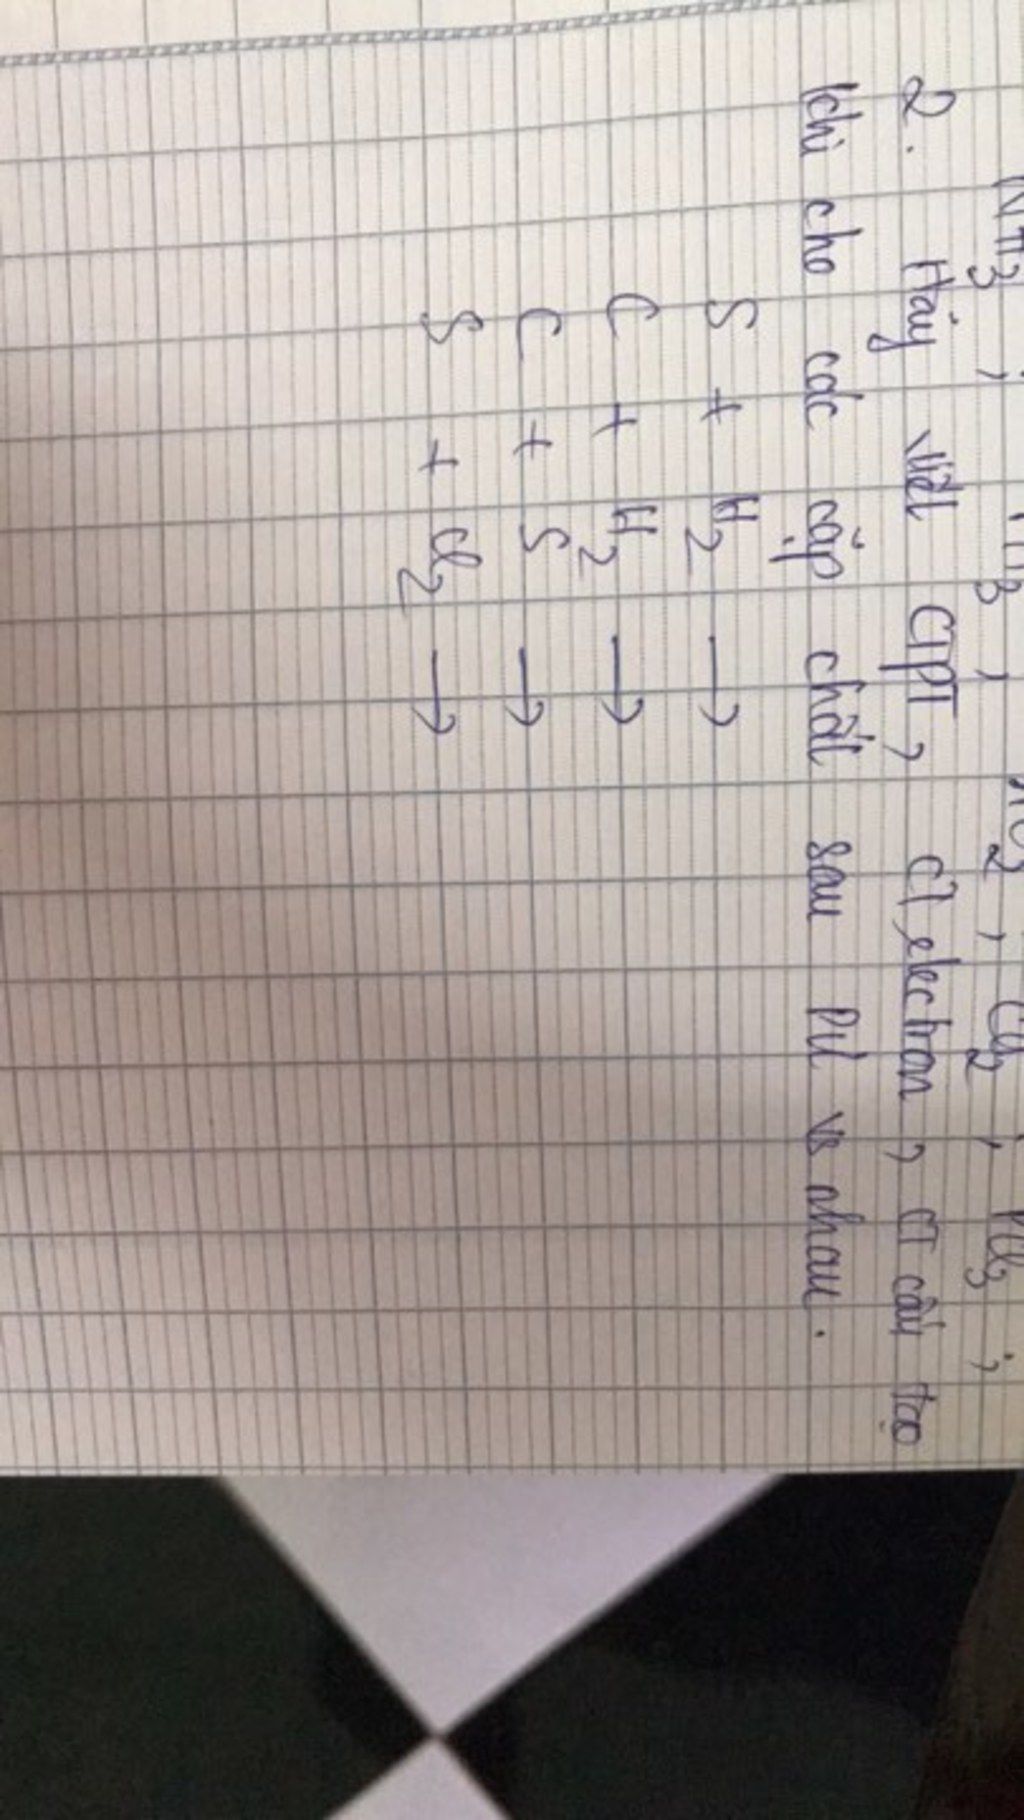 NH3 ; 3 , 2 , Cl2 ; PCl3 ;
2. Hãy viết CTPT, CT electron, CT cấu tạo
khi cho các cặp chất sau PƯ vs nhau.
S + H2 →
C + H2 →
C + S →
S + Cl2 →